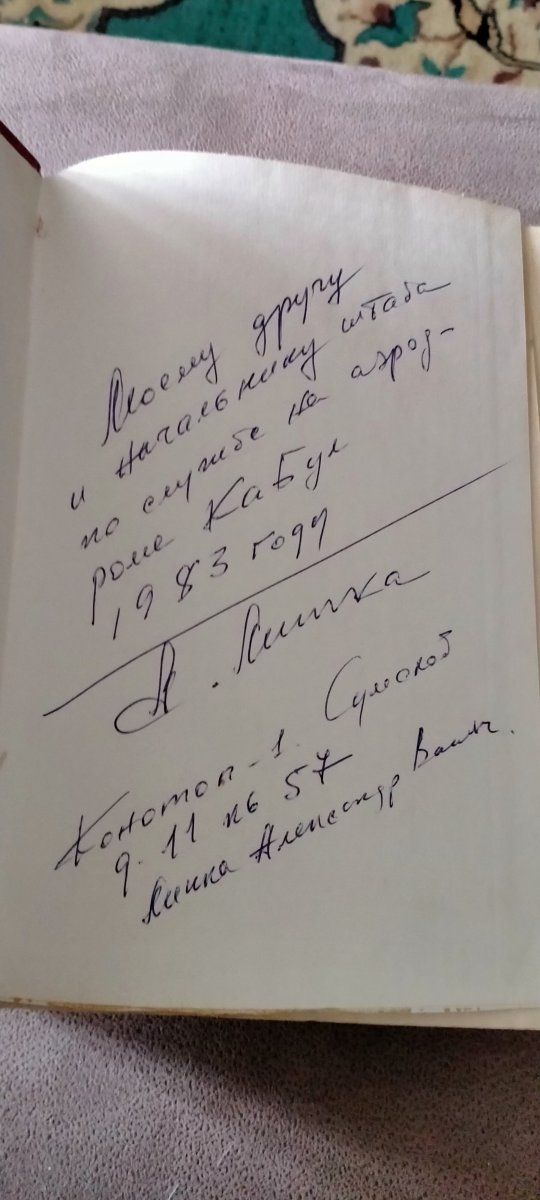 Моему другу
и начальнику штаба
по службе на аэрод-
роме Кабул
1983 году
А. Липка
Конотоп-1. Сумской
д. 11 кв 57
Липка Александр